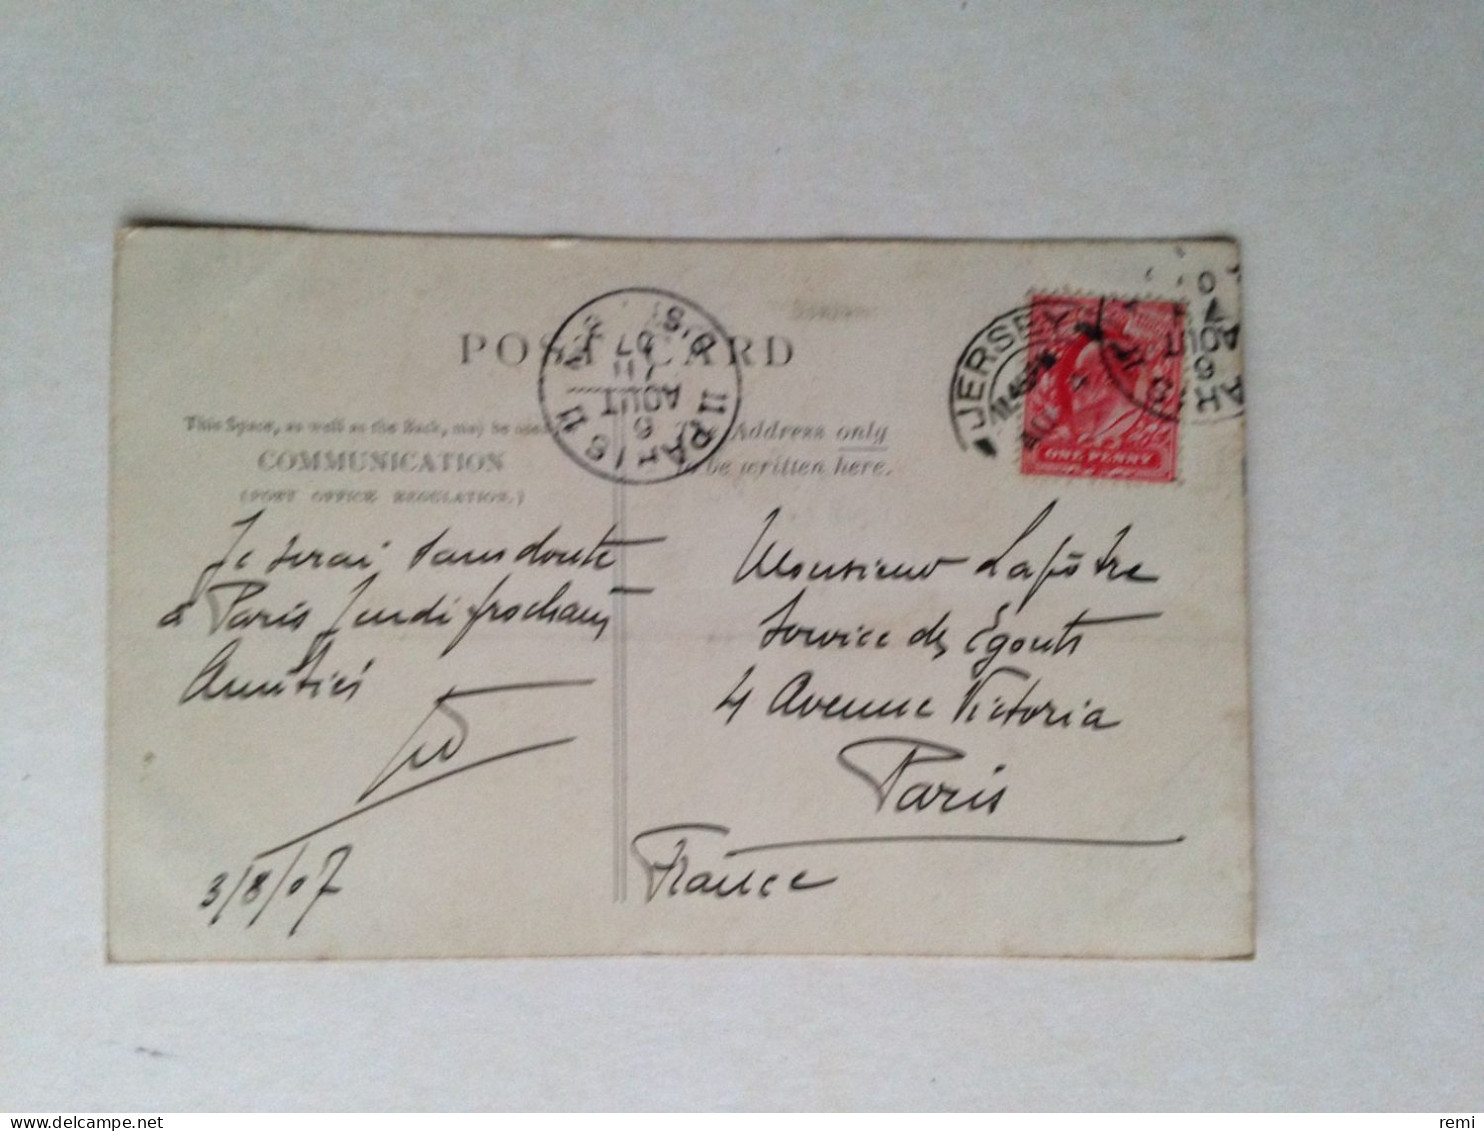 POST CARD
This Space, as well as the Back, may be used
COMMUNICATION
(POST OFFICE REGULATION.)
The Address only
to be written here.
JERSEY
ONE PENNY
PARIS 11
5
AOUT
07
Je serai sans doute
à Paris Jeudi prochain
Amitiés
3/8/07
Monsieur Lapôtre
Service des Egouts
4 Avenue Victoria
Paris
France
delcampe.net
remi